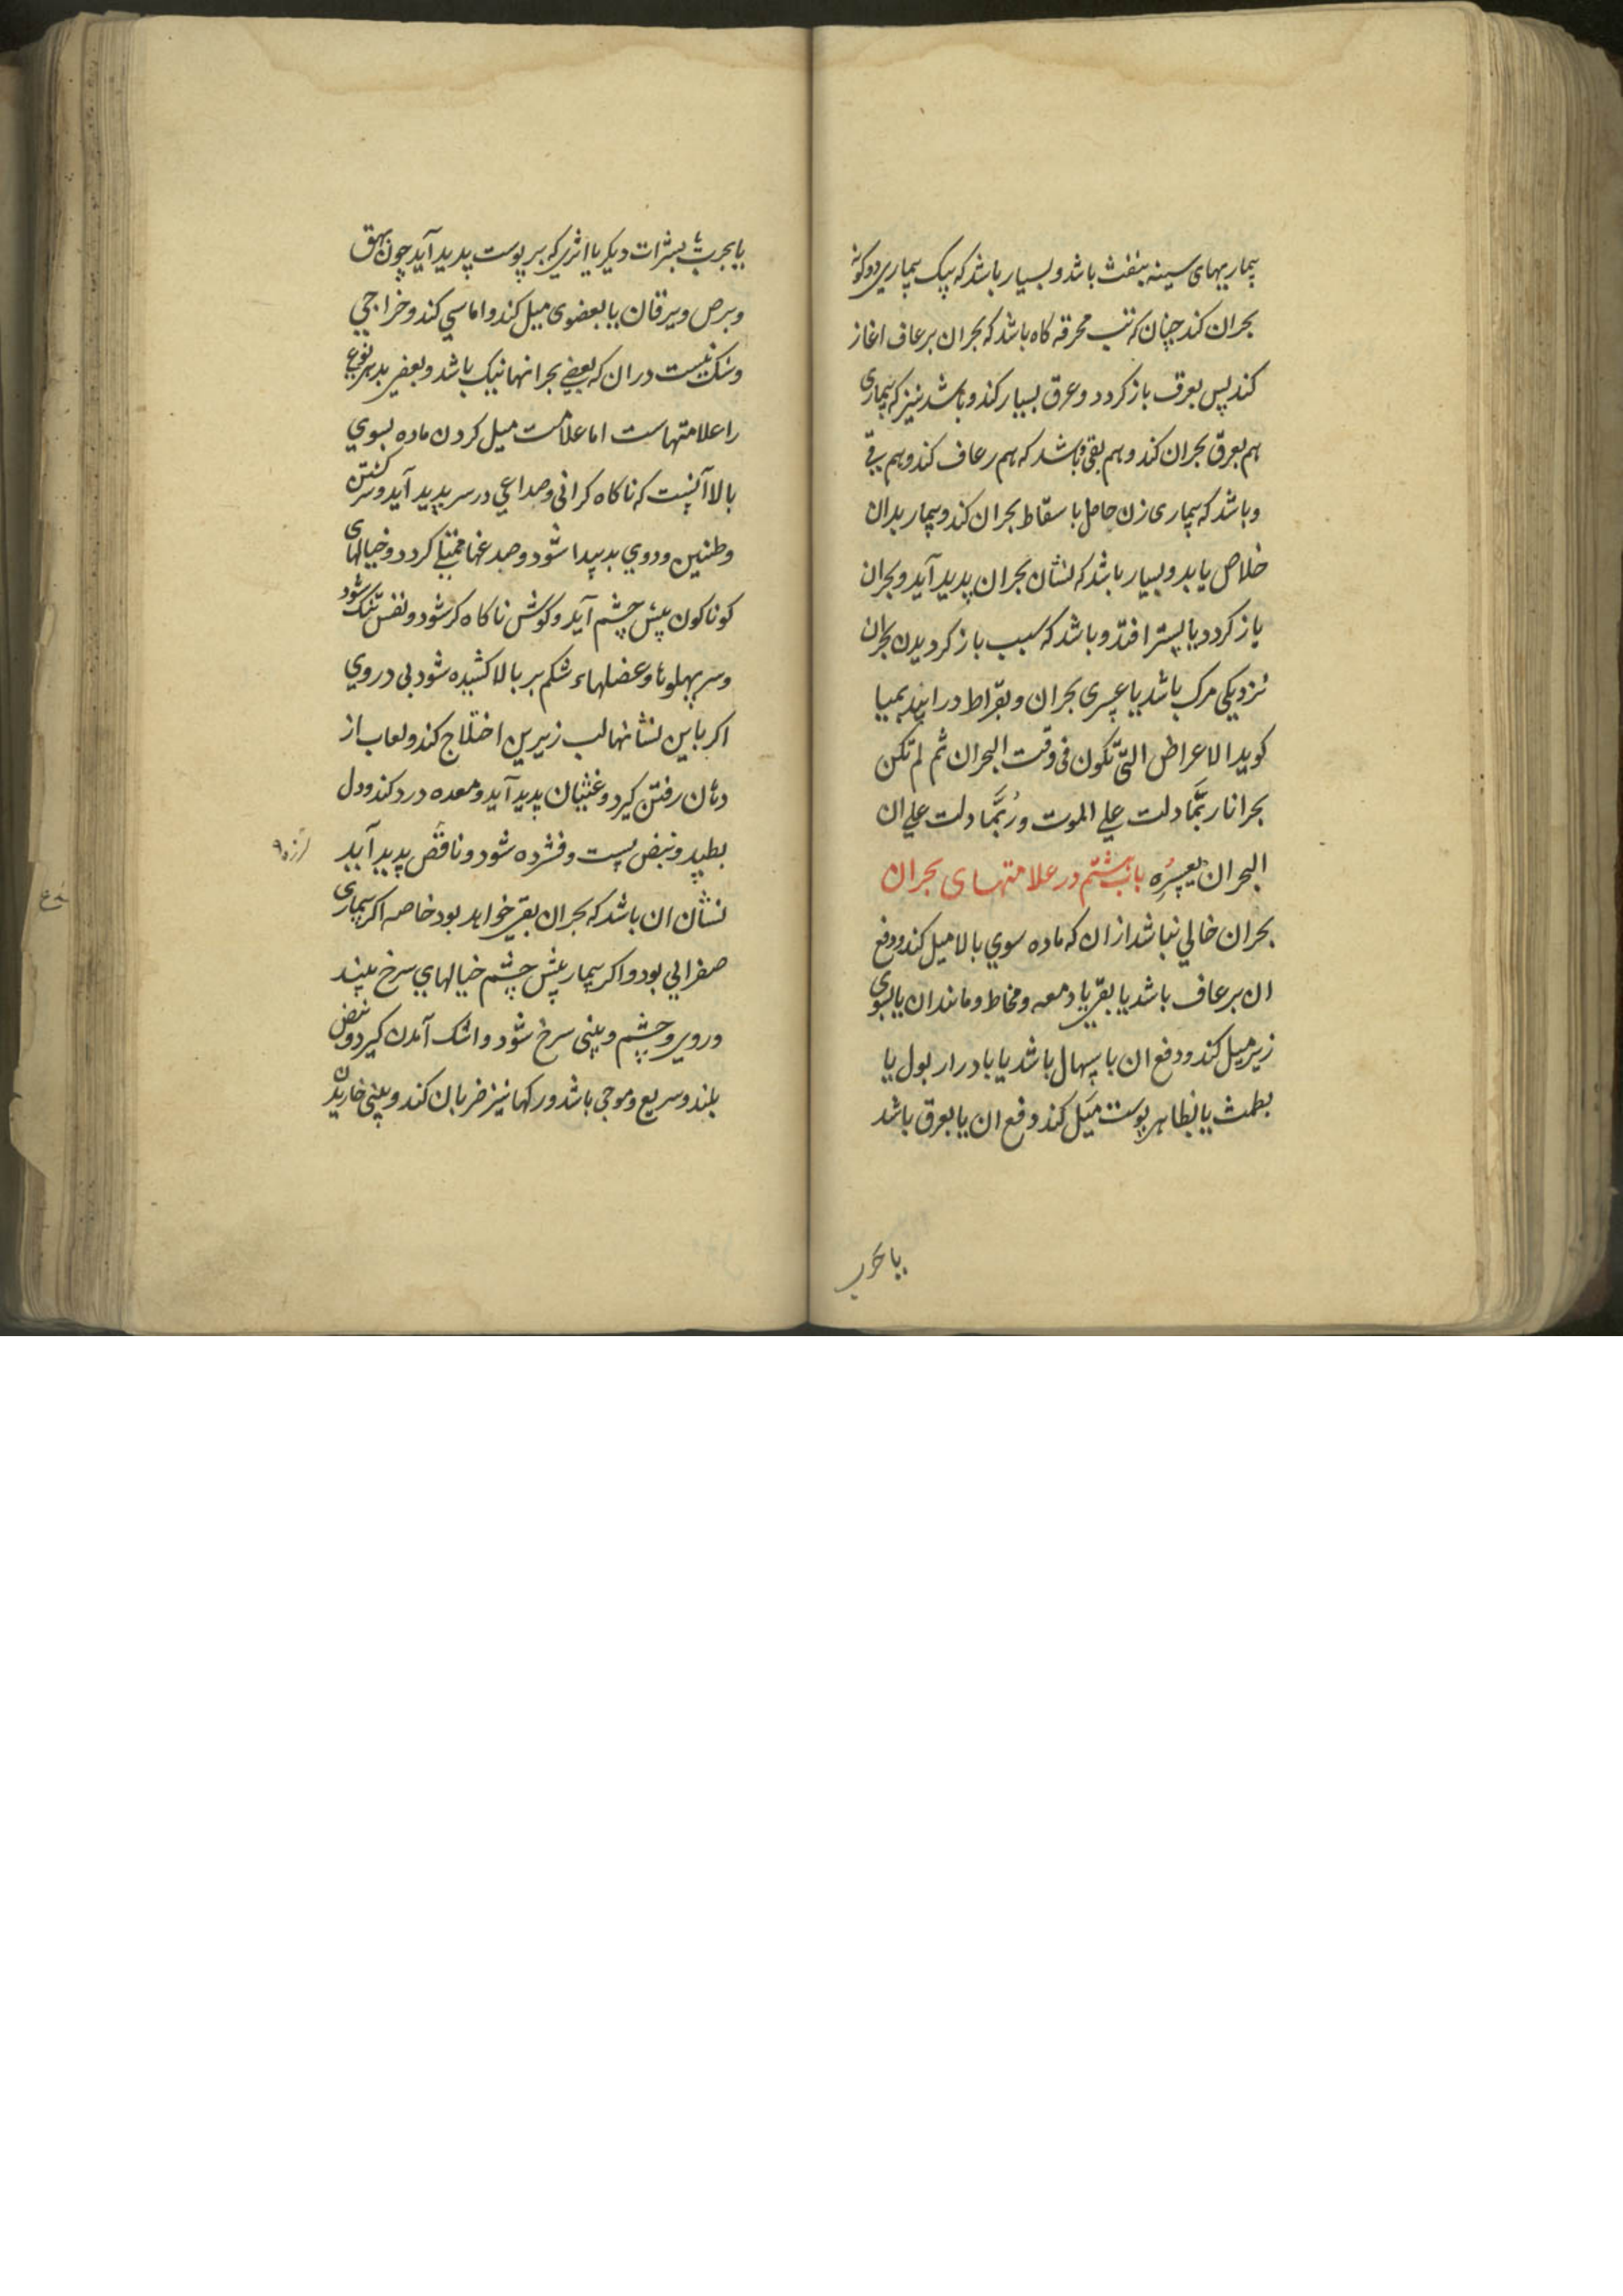 بیماریهای سینه بنفث باشد و بسیار باشد که یک بیماری دوکونه
بحران کند چنان که تب محرقه کاه باشد که بحران برعاف اغاز
کند پس بعرق باز کردد و عرق بسیار کند و باشد نیز که بیماری
هم بعرق بحران کند و هم بقی و باشد که هم رعاف کند و هم بقی
و باشد که بیماری زن حامل باسقاط بحران کند و بیمار بدان
خلاص یابد و بسیار باشد که نشان بحران پدید آید و بحران
باز کردد یا پستر افتد و باشد که سبب باز کردیدن بحران
نزدیکی مرک باشد یا عسری بحران و بقراط در ابیدیمیا
کوید الاعراض التی تکون فی وقت البحران ثم لم تکن
بحرانا ربّما دلت علی الموت و رُبّما دلت علی ان
البحران یعسُره باب هشتم در علامتهای بحران
بحران خالی نباشد از ان که ماده سوی بالا میل کند و دفع
ان برعاف باشد یا بقی یا دمعه و مخاط و مانند ان یا بسوی
زیر میل کند و دفع ان باسهال باشد یا بادرار بول یا
بطمث یا بظاهر پوست میل کند دفع ان یا بعرق باشد
یا بجرب
یا بجرب یا بثرات دیکر یا اثری که بر پوست پدید آید چون بهق
و برص و یرقان یا بعضوی میل کند و اماسی کند و خراجی
و شک نیست دران که بعضی بحرانها نیک باشد و بعضی بد هر نوعی
را علامتهاست اما علامت میل کردن ماده بسوی
بالا آنست که ناکاه کرانی و صداعی در سر پدید آید و سرکشتن
و طنین و دوی بدیدا شود و صدغها ممتلی کردد و خیالهای
کوناکون پیش چشم آید و کوش ناکاه کر شود و نفس تنک شود
و سر پهلوها و عضلهاء شکم بر بالا کشیده شود بی دردی
اکر با این نشانها لب زیرین اختلاج کند و لعاب از
دهان رفتن کیرد و غثیان پدید آید و معده درد کند و دل
بطپد و نبض پست و فشرده شود و ناقض پدید آید
لرزه
نشان ان باشد که بحران بقی خواهد بود خاصه اکر بیماری
صفرایی بود و اکر بیمار پیش چشم خیالهای سرخ بیند
و روی و چشم و بینی سرخ شود و اشک آمدن کیرد و نبض
بلند و سریع و موجی باشد و رکها نیز ضربان کند و بینی خاریدن